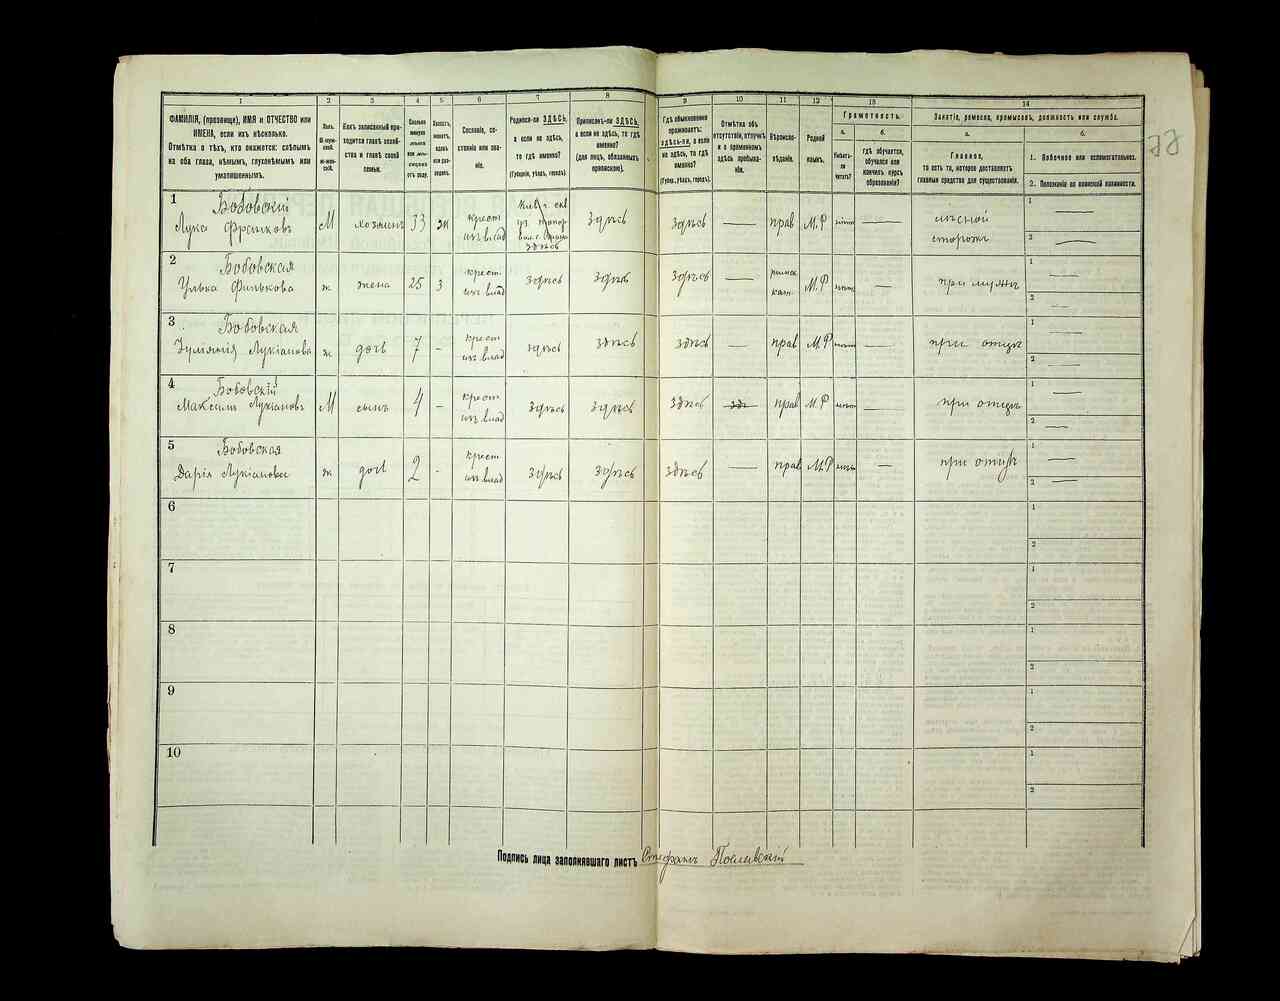 1 2 3 4 5 6 7 8 9 10 11 12 13 14
ФАМИЛІЯ, (прозвище), ИМЯ и ОТЧЕСТВО или
ИМЕНА, если ихъ нѣсколько.
Отмѣтка о тѣхъ, кто окажется: слѣпымъ
на оба глаза, нѣмымъ, глухонѣмымъ или
умалишеннымъ.
Полъ.
М-муж-
ской.
ж-жен-
скій.
Какъ записанный при-
ходится главѣ хозяй-
ства и главѣ своей
семьи.
Сколько
минуло
лѣтъ
или мѣ-
сяцевъ
отъ роду.
Холостъ,
женатъ,
вдовъ
или раз-
веденъ.
Сословіе, со-
стояніе или зва-
ніе.
Родился-ли ЗДѢСЬ,
а если не здѣсь,
то гдѣ именно?
(Губернія, уѣздъ, городъ).
Приписанъ-ли ЗДѢСЬ,
а если не здѣсь, то гдѣ
именно?
(для лицъ, обязанныхъ
припискою).
Гдѣ обыкновенно
проживаетъ:
здѣсь-ли, а если
не здѣсь, то гдѣ
именно?
(Губерн., уѣздъ, городъ).
Отмѣтка объ
отсутствіи, отлучкѣ
и о временномъ
здѣсь пребыва-
ніи.
Вѣроиспо-
вѣданіе.
Родной
языкъ.
Грамотность.
а.
Умѣетъ-
ли
читать?
б.
гдѣ обучается,
обучался или
кончилъ курсъ
образованія?
Занятіе, ремесло, промыселъ, должность или служба.
а.
Главное,
то есть то, которое доставляетъ
главныя средства для существованія.
б.
1. Побочное или вспомогательное.
2. Положеніе по воинской повинности.
1 Бобовскій
Лука М хозяинъ 33 ж крест
изъ влад здѣсь здѣсь — прав М.Р —
лѣсной
сторожъ
1 —
2 —
2 Бобовская
ж жена 25 З крест
изъ влад здѣсь здѣсь здѣсь — М.Р — при мужѣ
1 —
2 —
3 Бобовская
Лукіанова ж дочь 7 - крест
изъ влад здѣсь здѣсь здѣсь — прав М.Р — при отцѣ
1 —
2 —
4 Бобовскій
Максимъ Лукіановъ М сынъ 4 - крест
изъ влад здѣсь здѣсь здѣсь прав М.Р — при отцѣ
1 —
2 —
5 Бобовская
Дарія Лукіанова ж дочь 2 - крест
изъ влад здѣсь здѣсь здѣсь — прав М.Р — при отцѣ
1 —
2 —
6
1
2
7
1
2
8
1
2
9
1
2
10
1
2
Подпись лица заполнявшаго листъ